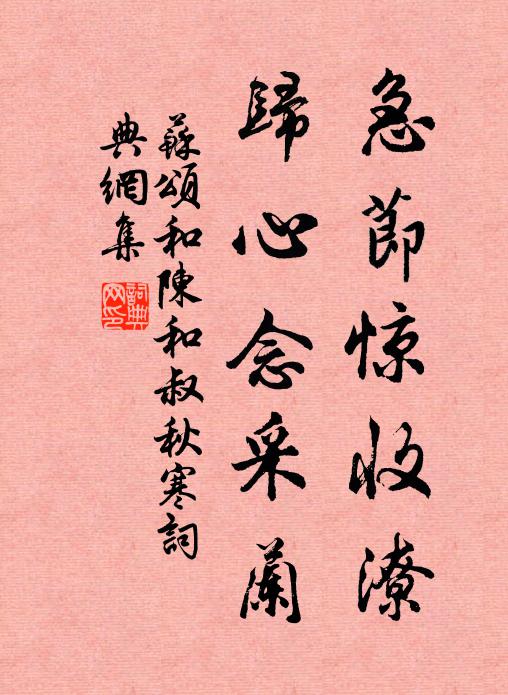 急節惊收潦
歸心念采蘭
蘇頌和陳和叔秋寒詞
典網集
詞典网印